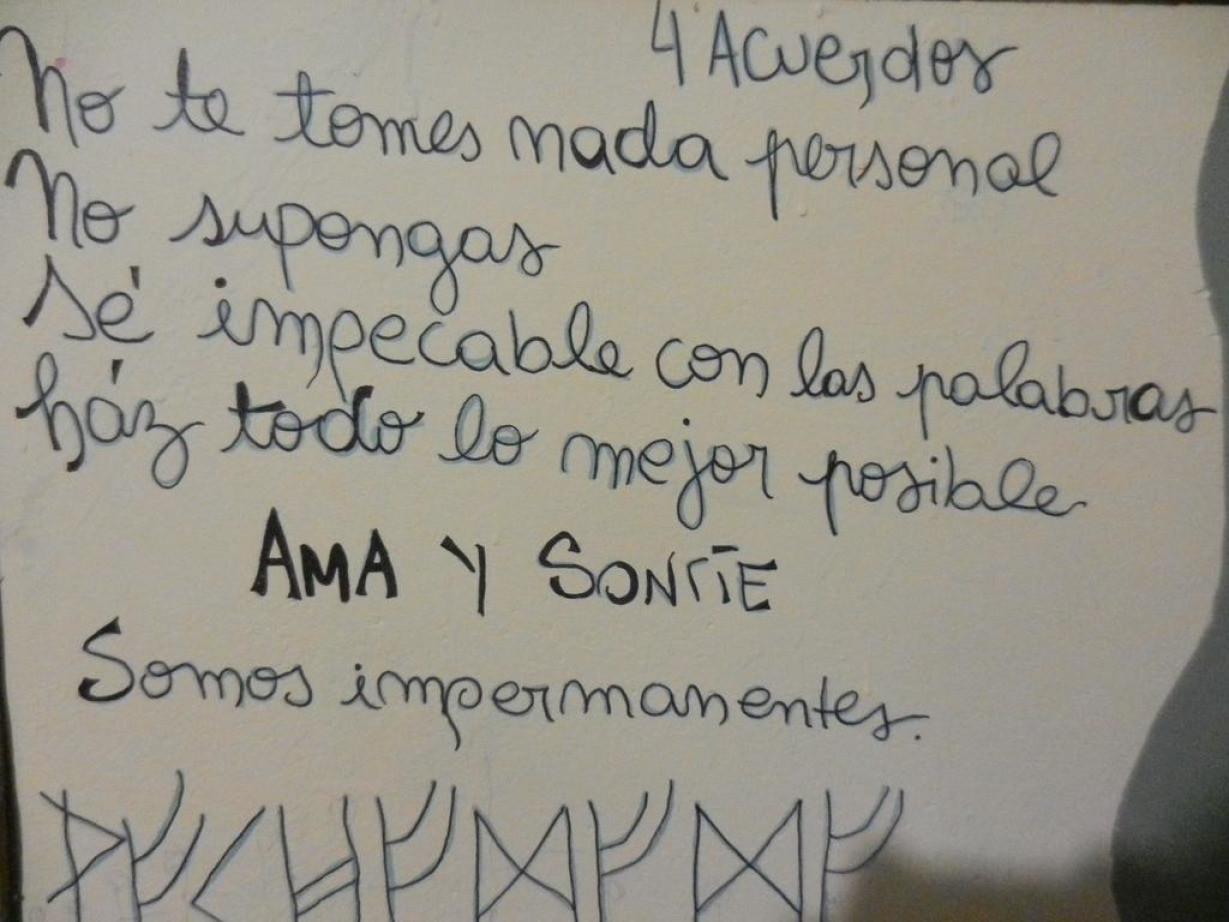 4 Acuerdos
No te tomes nada personal
No supongas
Sé impecable con las palabras
ház todo lo mejor posible
AMA Y SONríE
Somos impermanentes.